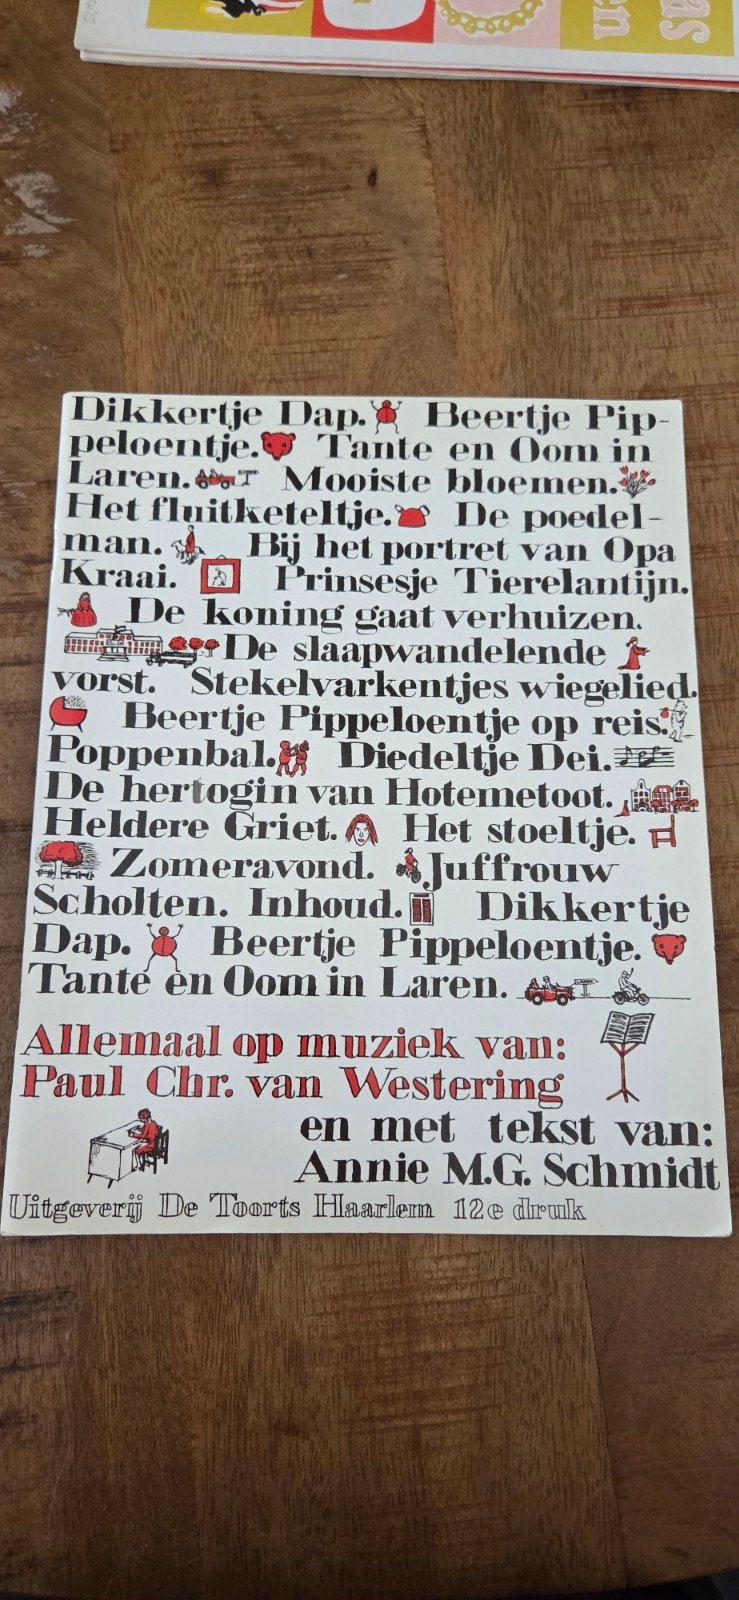 as
en
Dikkertje Dap. Beertje Pip-
peloentje. Tante en Oom in
Laren. Mooiste bloemen.
Het fluitketeltje. De poedel-
man. Bij het portret van Opa
Kraai. Prinsesje Tierelantijn.
De koning gaat verhuizen.
De slaapwandelende
vorst. Stekelvarkentjes wiegelied.
Beertje Pippeloentje op reis.
Poppenbal. Diedeltje Dei.
De hertogin van Hotemetoot.
Heldere Griet. Het stoeltje.
Zomeravond. Juffrouw
Scholten. Inhoud. Dikkertje
Dap. Beertje Pippeloentje.
Tante en Oom in Laren. LAREN
Allemaal op muziek van:
Paul Chr. van Westering
en met tekst van:
Annie M.G. Schmidt
Uitgeverij De Toorts Haarlem 12e druk